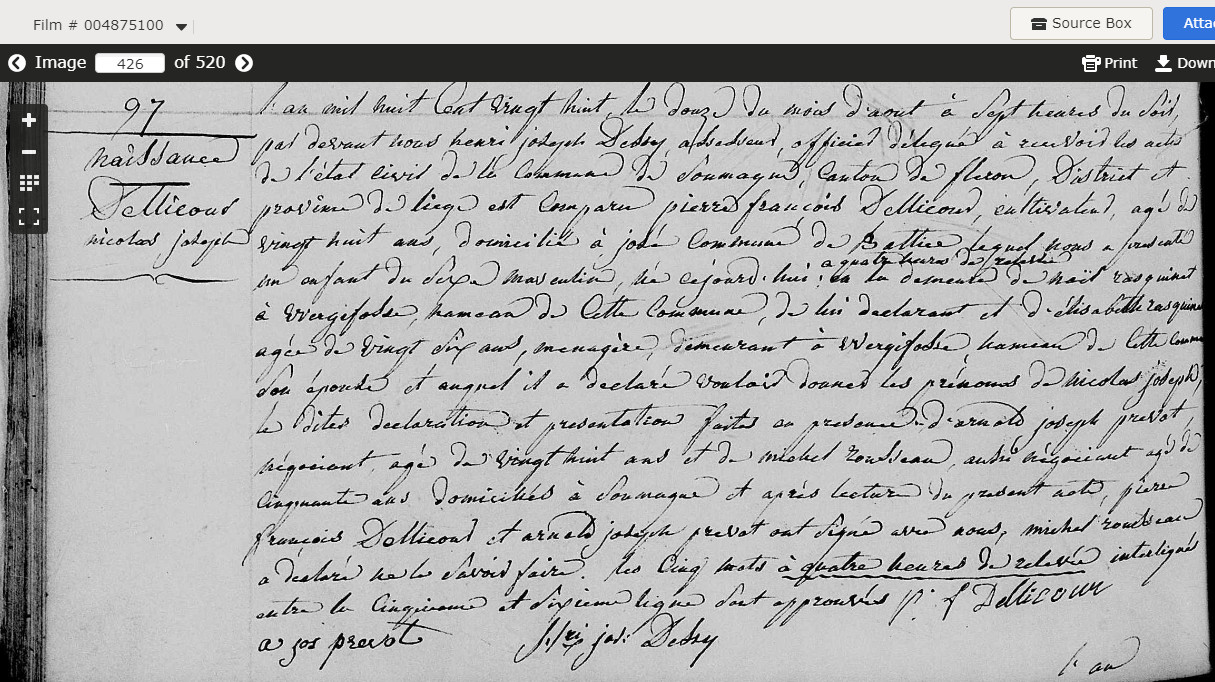 Film # 004875100
Source Box
Attac
Image 426 of 520
Print
Down
97
naissance
Dellicour
nicolas joseph
l'an mil huit Cent vingt huit, le douze du mois d'aout à Sept heures du Soir,
par devant nous henri joseph Dessy assesseur, officier délégué à recevoir les actes
de l'état civil de la Commune de Soumagne, Canton de fleron, District et
province de liege est Comparu pierre françois Dellicour, cultivateur, agé de
vingt huit ans, domicilié à josé Commune de Battice lequel nous a presenté
a quatre heures de relevée
un enfant du Sexe masculin, né cejourd'hui en la demeure de noël rasquinet
à Wergifosse, hameau de Cette Commune, de lui declarant et d'élisabeth rasquinet
agée de vingt Six ans, menagère, demeurant à Wergifosse, hameau de Cette Commune
son épouse et auquel il a declaré vouloir donner les prénoms de nicolas joseph,
le dites declaration et presentation faites en presence d'arnold joseph prevot,
négociant, agé de vingt huit ans et de michel rousseau, aussi négociant agé de
Cinquante ans domiciliés à Soumagne et après lecture du present acte, pierre
françois Dellicour et arnold joseph prevot ont Signé avec nous, michel rousseau
a declaré ne le Savoir faire. les Cinq mots à quatre heures de relevée interlignés
entre la Cinquieme et Sixieme ligne Sont approuvés p. f Dellicour
a jos prevot
hri jos: Dessy
l'an